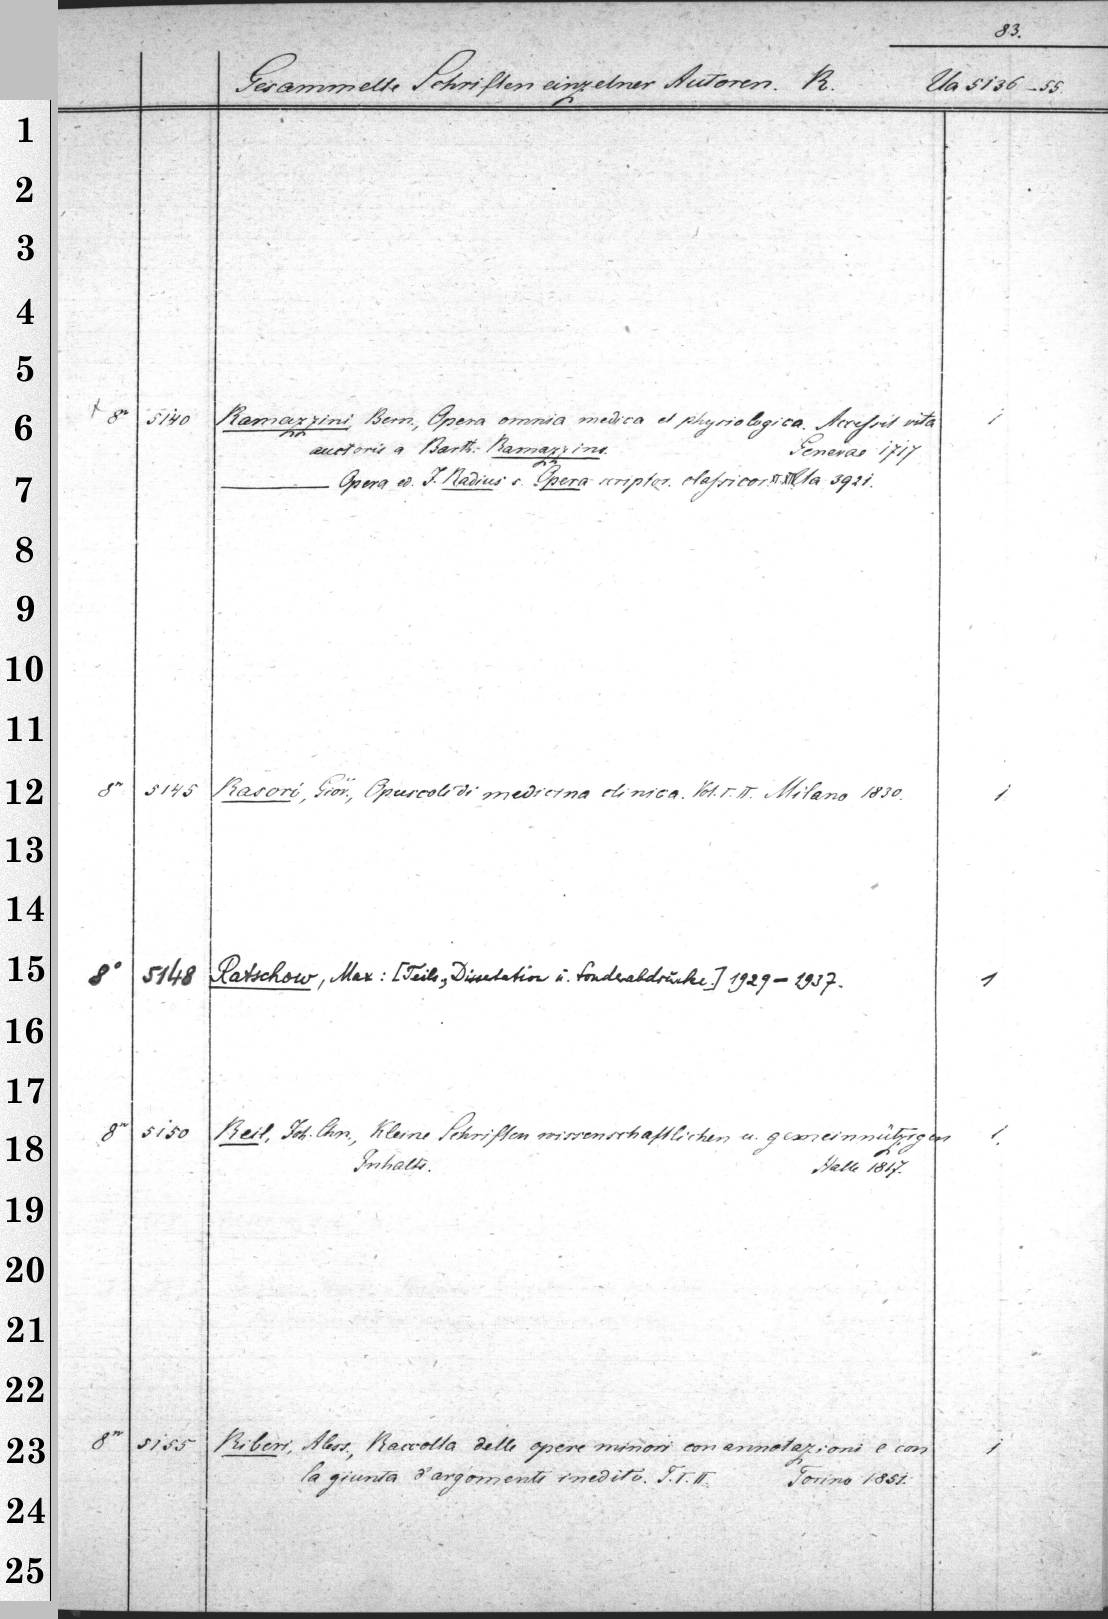 83.
Gesammelte Schriften einzelner Autoren. R. Ua 5136-55.
1
2
3
4
5
6
7
8
9
10
11
12
13
14
15
16
17
18
19
20
21
22
23
24
25
+ 8° 5140 Ramazzini, Bern., Opera omnia medica et physiologica. Accessit vita 1
auctoris a Barth. Ramazzino. Genevae 1717
——— Opera ed. J. Radius s. Opera scriptor. classicor. Ua 3921.
8° 5145 Rasori, Giov., Opuscoli di medicina clinica. Vol. I. II. Milano 1830. 1
8° 5148 Ratschow, Max: [Teils, Dissertation u. Sonderabdrucke.] 1929-1937. 1
8° 5150 Reil, Joh. Chn., Kleine Schriften wissenschaftlichen u. gemeinnützigen 1.
Inhalts. Halle 1817.
8° 5155 Riberi, Aless., Raccolta delle opere minori con annotazioni e con 1
la giunta d'argomenti inediti. T. I. II. Torino 1851.